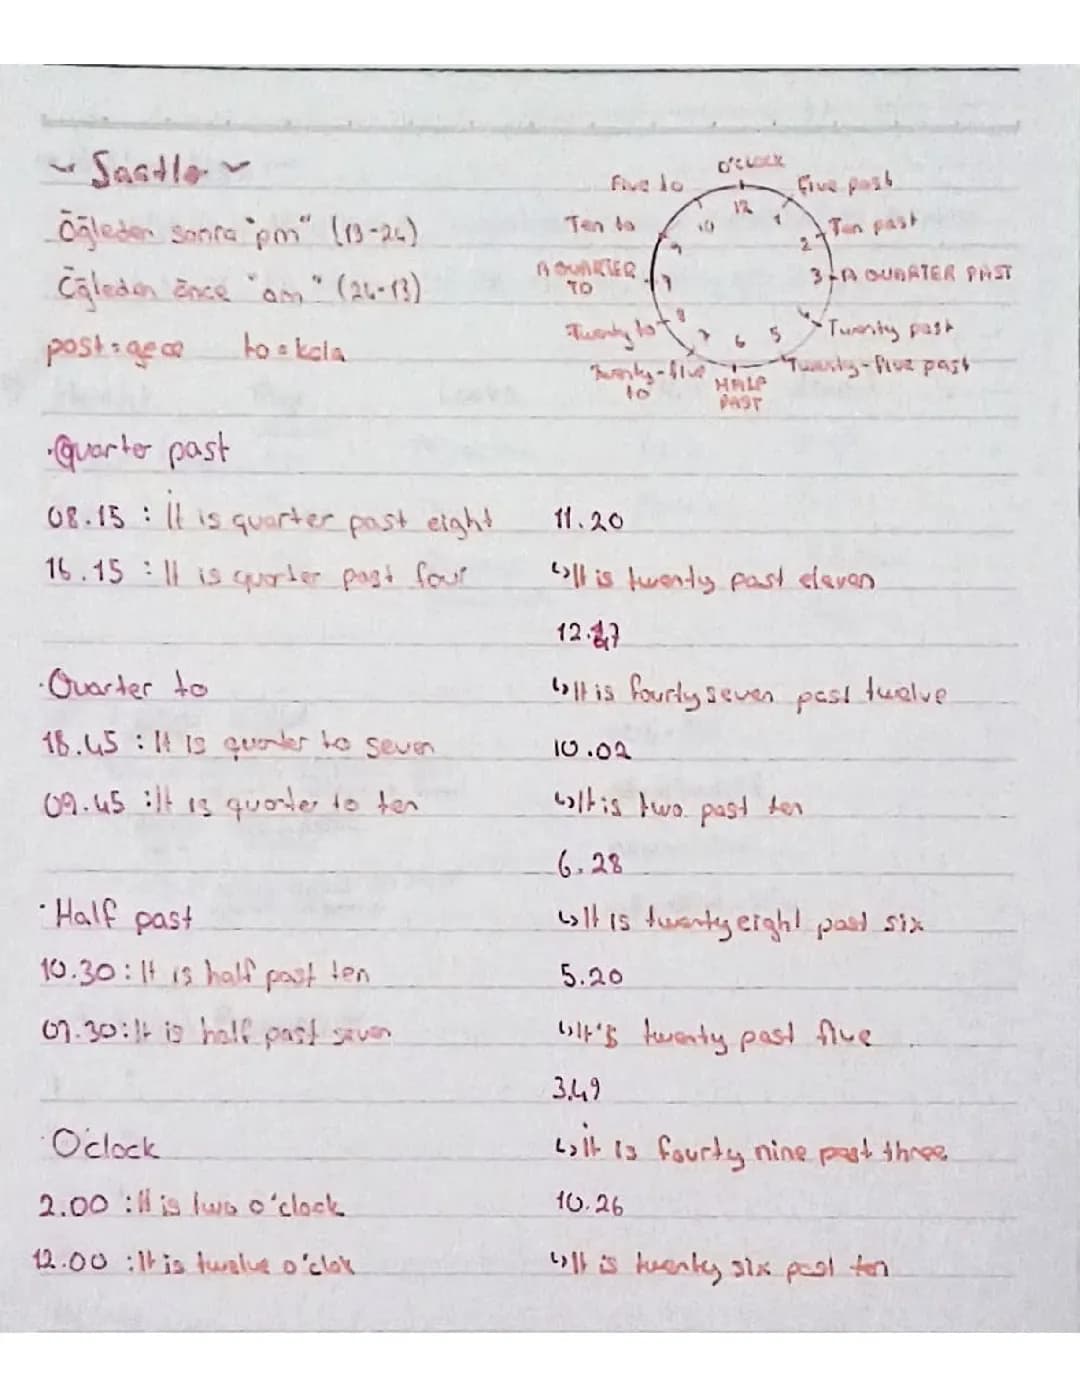 ~ Saatler ~
Öğleden sonra "pm" (13-24)
Öğleden önce "am" (24-13)
past = geçe to = kala
O'CLOCK
Five to
Five past
Ten to
Ten past
A QUARTER TO
A QUARTER PAST
Twenty to
Twenty past
Twenty-five to
Twenty-five past
HALF PAST
12
1
2
3
4
5
6
7
8
9
10
·Quarter past
08.15 : It is quarter past eight
16.15 : It is quarter past four
·Quarter to
18.45 : It is quarter to seven
09.45 : It is quarter to ten
·Half past
10.30 : It is half past ten
07.30 : It is half past seven
·O'clock
2.00 : It is two o'clock
12.00 : It is twelve o'clok
11.20
↳It is twenty past eleven
12.47
↳It is fourty seven past twelve
10.02
↳It is two past ten
6.28
↳It is twenty eight past six
5.20
↳It's twenty past five
3.49
↳it is fourty nine past three
10.26
↳It is twenty six past ten